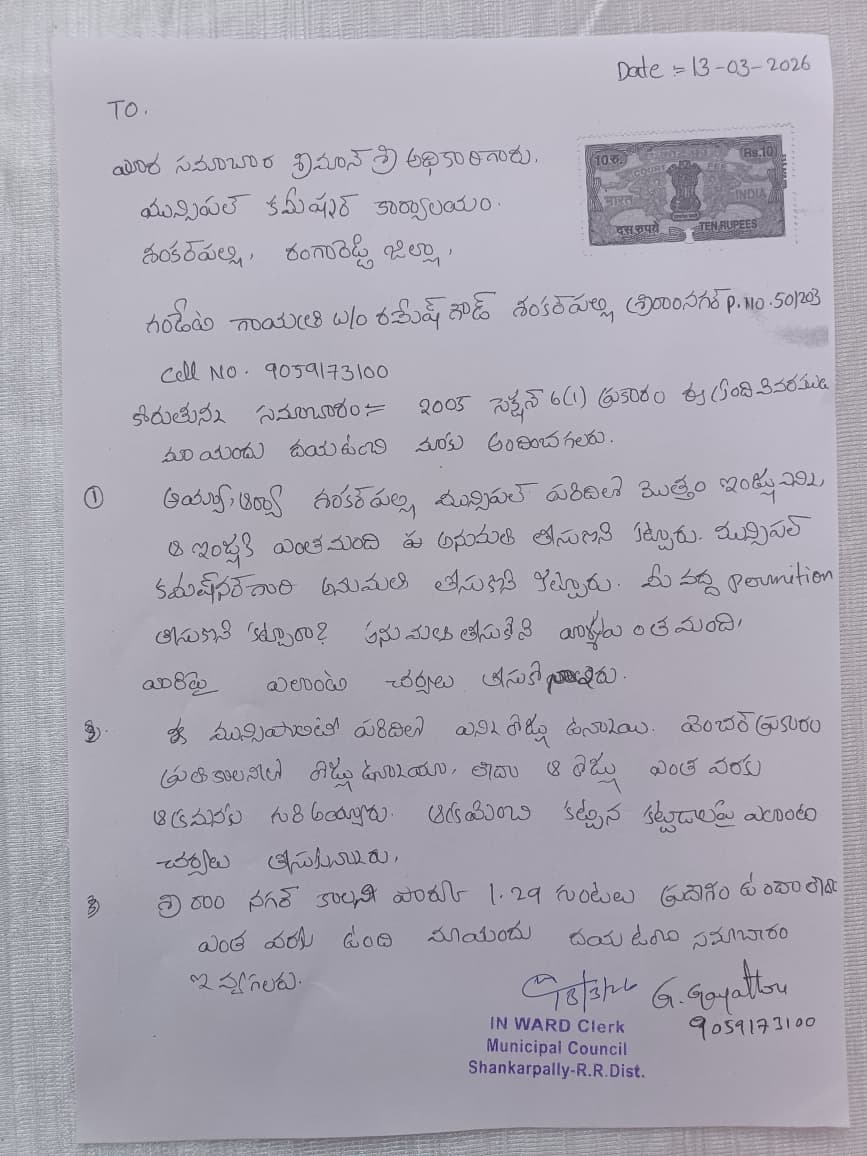 Date :- 13-03-2026
TO.
పౌర సమాచార శ్రీమాన్ శ్రీ అధికారిగారు.
మున్సిపల్ కమీషనర్ కార్యాలయం.
శంకర్‌పల్లి, రంగారెడ్డి జిల్లా,
10 रु. Rs.10
COURT FEE
भारत INDIA
दस रुपये TEN RUPEES
గాయత్రి W/O రమేష్ గౌడ్ శంకర్‌పల్లి శ్రీరాంనగర్ P.NO.50/203
Cell NO. 9059173100
కోరుతున్న సమాచారం:- 2005 సెక్షన్ 6(1) ప్రకారం ఈ క్రింది వివరములు
మా యందు దయ ఉంచి మాకు అందించగలరు.
① అయ్యా, శంకర్‌పల్లి మున్సిపల్ పరిధిలో మొత్తం ఇండ్లు ఎన్ని,
ఆ ఇండ్లకి ఎంతమంది అనుమతి తీసుకొని కట్టారు. మున్సిపల్
కమిషనర్ గారి అనుమతి తీసుకొని కట్టారు. మీ వద్ద permition
తీసుకొని కట్టారా? అనుమతి తీసుకోని వాళ్ళు ఎంత మంది,
వారిపై ఎలాంటి చర్యలు తీసుకొ
2. ఈ మున్సిపాలిటి పరిధిలో ఎన్ని రోడ్లు ఉన్నాయి. వెంచర్ ప్రకారం
ప్రతి కాలనిలో రోడ్లు ఉన్నాయా, లేదా ఆ రోడ్లు ఎంత వరకు
గురి అయ్యారు. ఆక్రమించి కట్టిన కట్టడాలపై ఎలాంటి
చర్యలు తీసుకున్నారు,
3 శ్రీ రాం నగర్ కాలని పార్కు 1.29 గుంటలు ప్రదేశం ఉందా లేదా
ఎంత వరకు ఉంది మాయందు దయ ఉంచి సమాచారం
ఇవ్వగలరు.
13/3/26 G. Gayattri
9059173100
IN WARD Clerk
Municipal Council
Shankarpally-R.R.Dist.